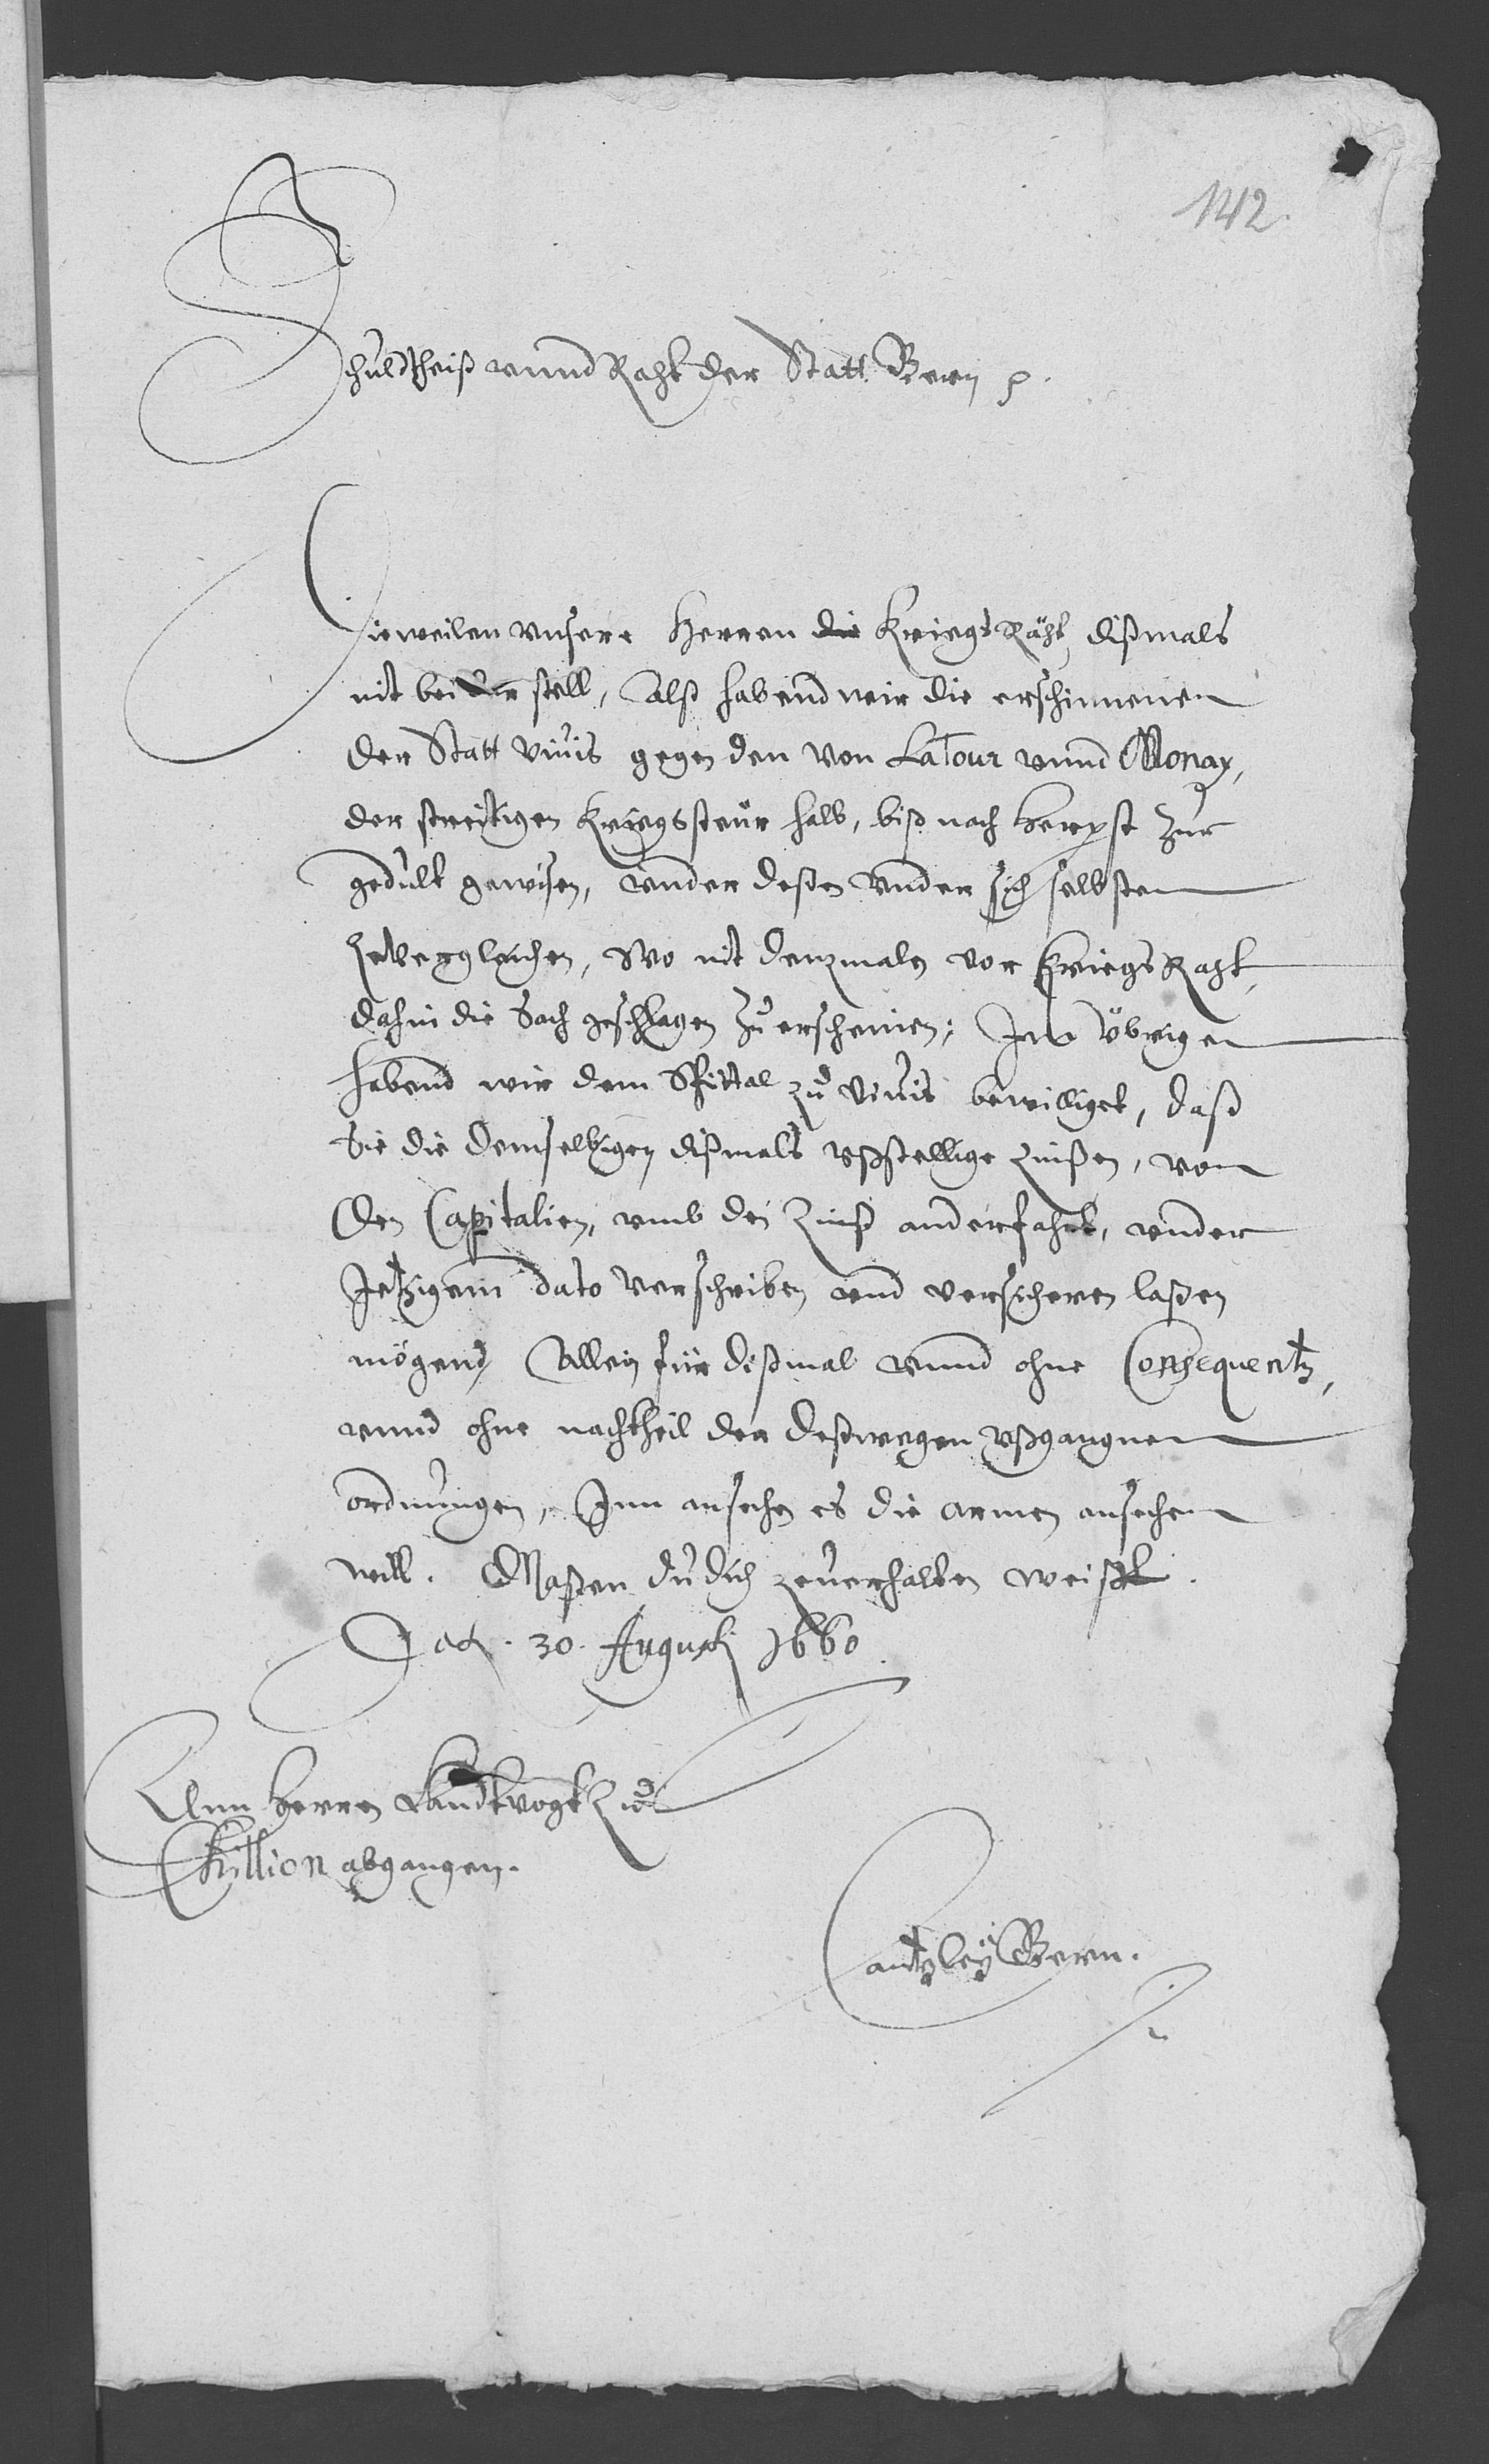 142.
Schuldtheiß vnnd Raht der Statt Bern p.
Dieweilen vnsere Herren die KriegsRäht, dißmals
nit bei der stell, Alß habend wir die erschinnenen
der Statt Vivis gegen den von LaTour vnnd Monay,
der streitigen Kriegssteür halb, biß nach Herpst zur
gedult gewisen, vnder deßen vnder sich selbsten
zevergleichen, Wo nit denzmalen vor KriegsRaht,
dahin die Sach geschlagen zu erscheinen; Im übrigen
habend wir dem Spittal zu Vivis bewilliget, daß
Sie die demselbigen dißmals vßstellige Zinßen, von
den Capitalien, vmb den Zinß anderfahrt, vnder
Jetzigem dato verschriben vnd versicheren laßen
mögend, Allein für dißmal vnnd ohne Consequentz,
vnnd ohne nachtheil der deßwegen vßgangnen
ordnungen, Inn ansechen es die armen ansechen
will. Maßen du dich zeverhalten weist.
Dat. 30. Augusti 1660.
Ann Herren Landtvogt zu
Chillion abgangen.
Cantzley Bern.